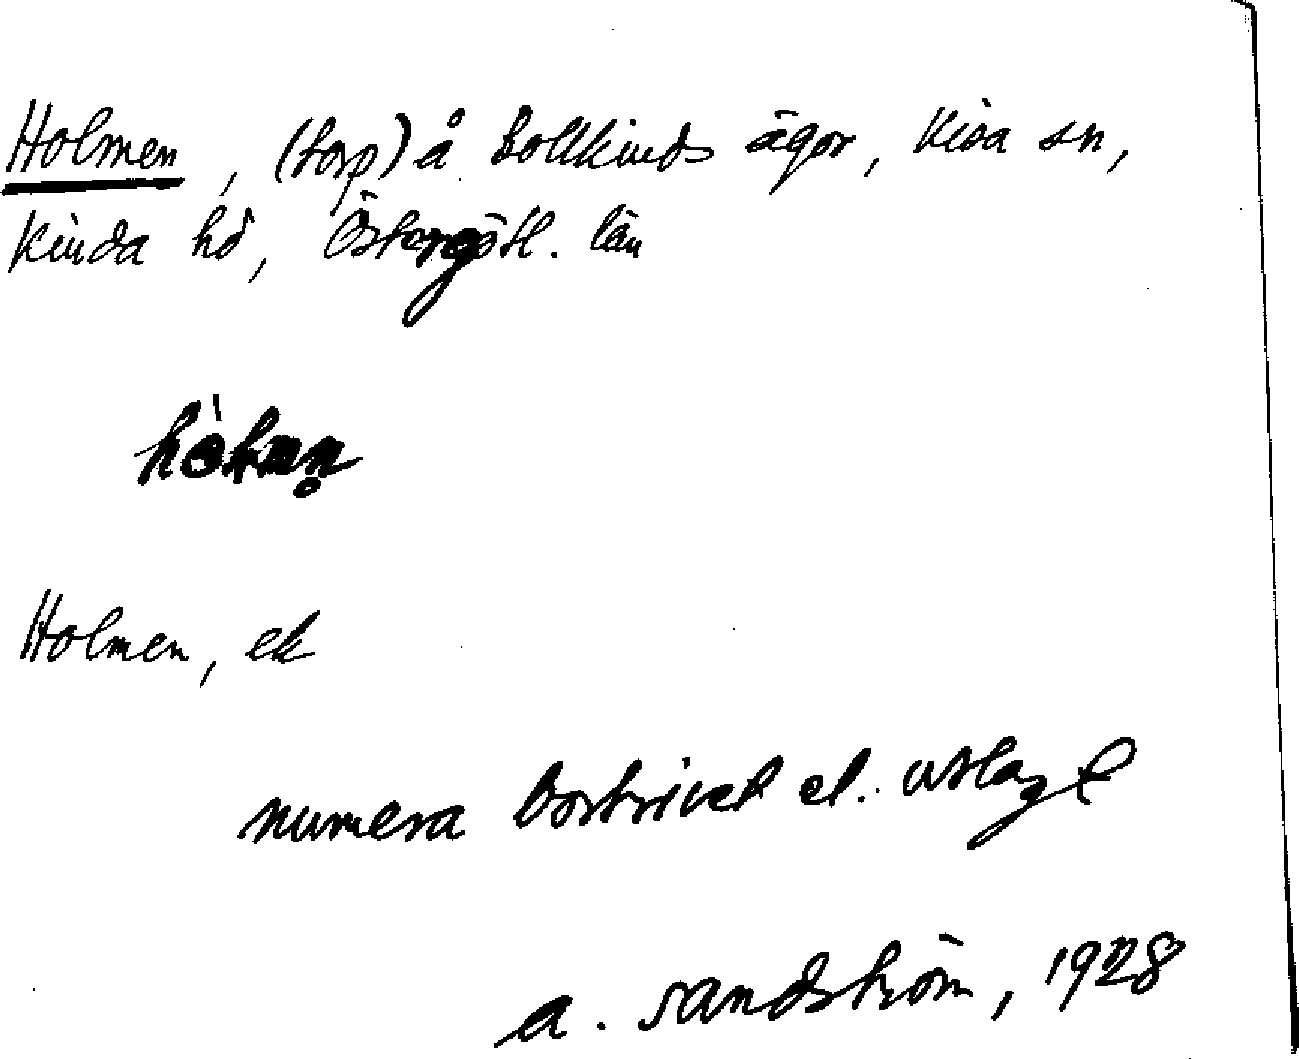 Holmen, (torp) å Bollkinds ägor, Kisa sn,
Kinda hd, Östergötl. län
Holmen, ek
numera bortrivet el. utlagt
A. Sandström, 1928